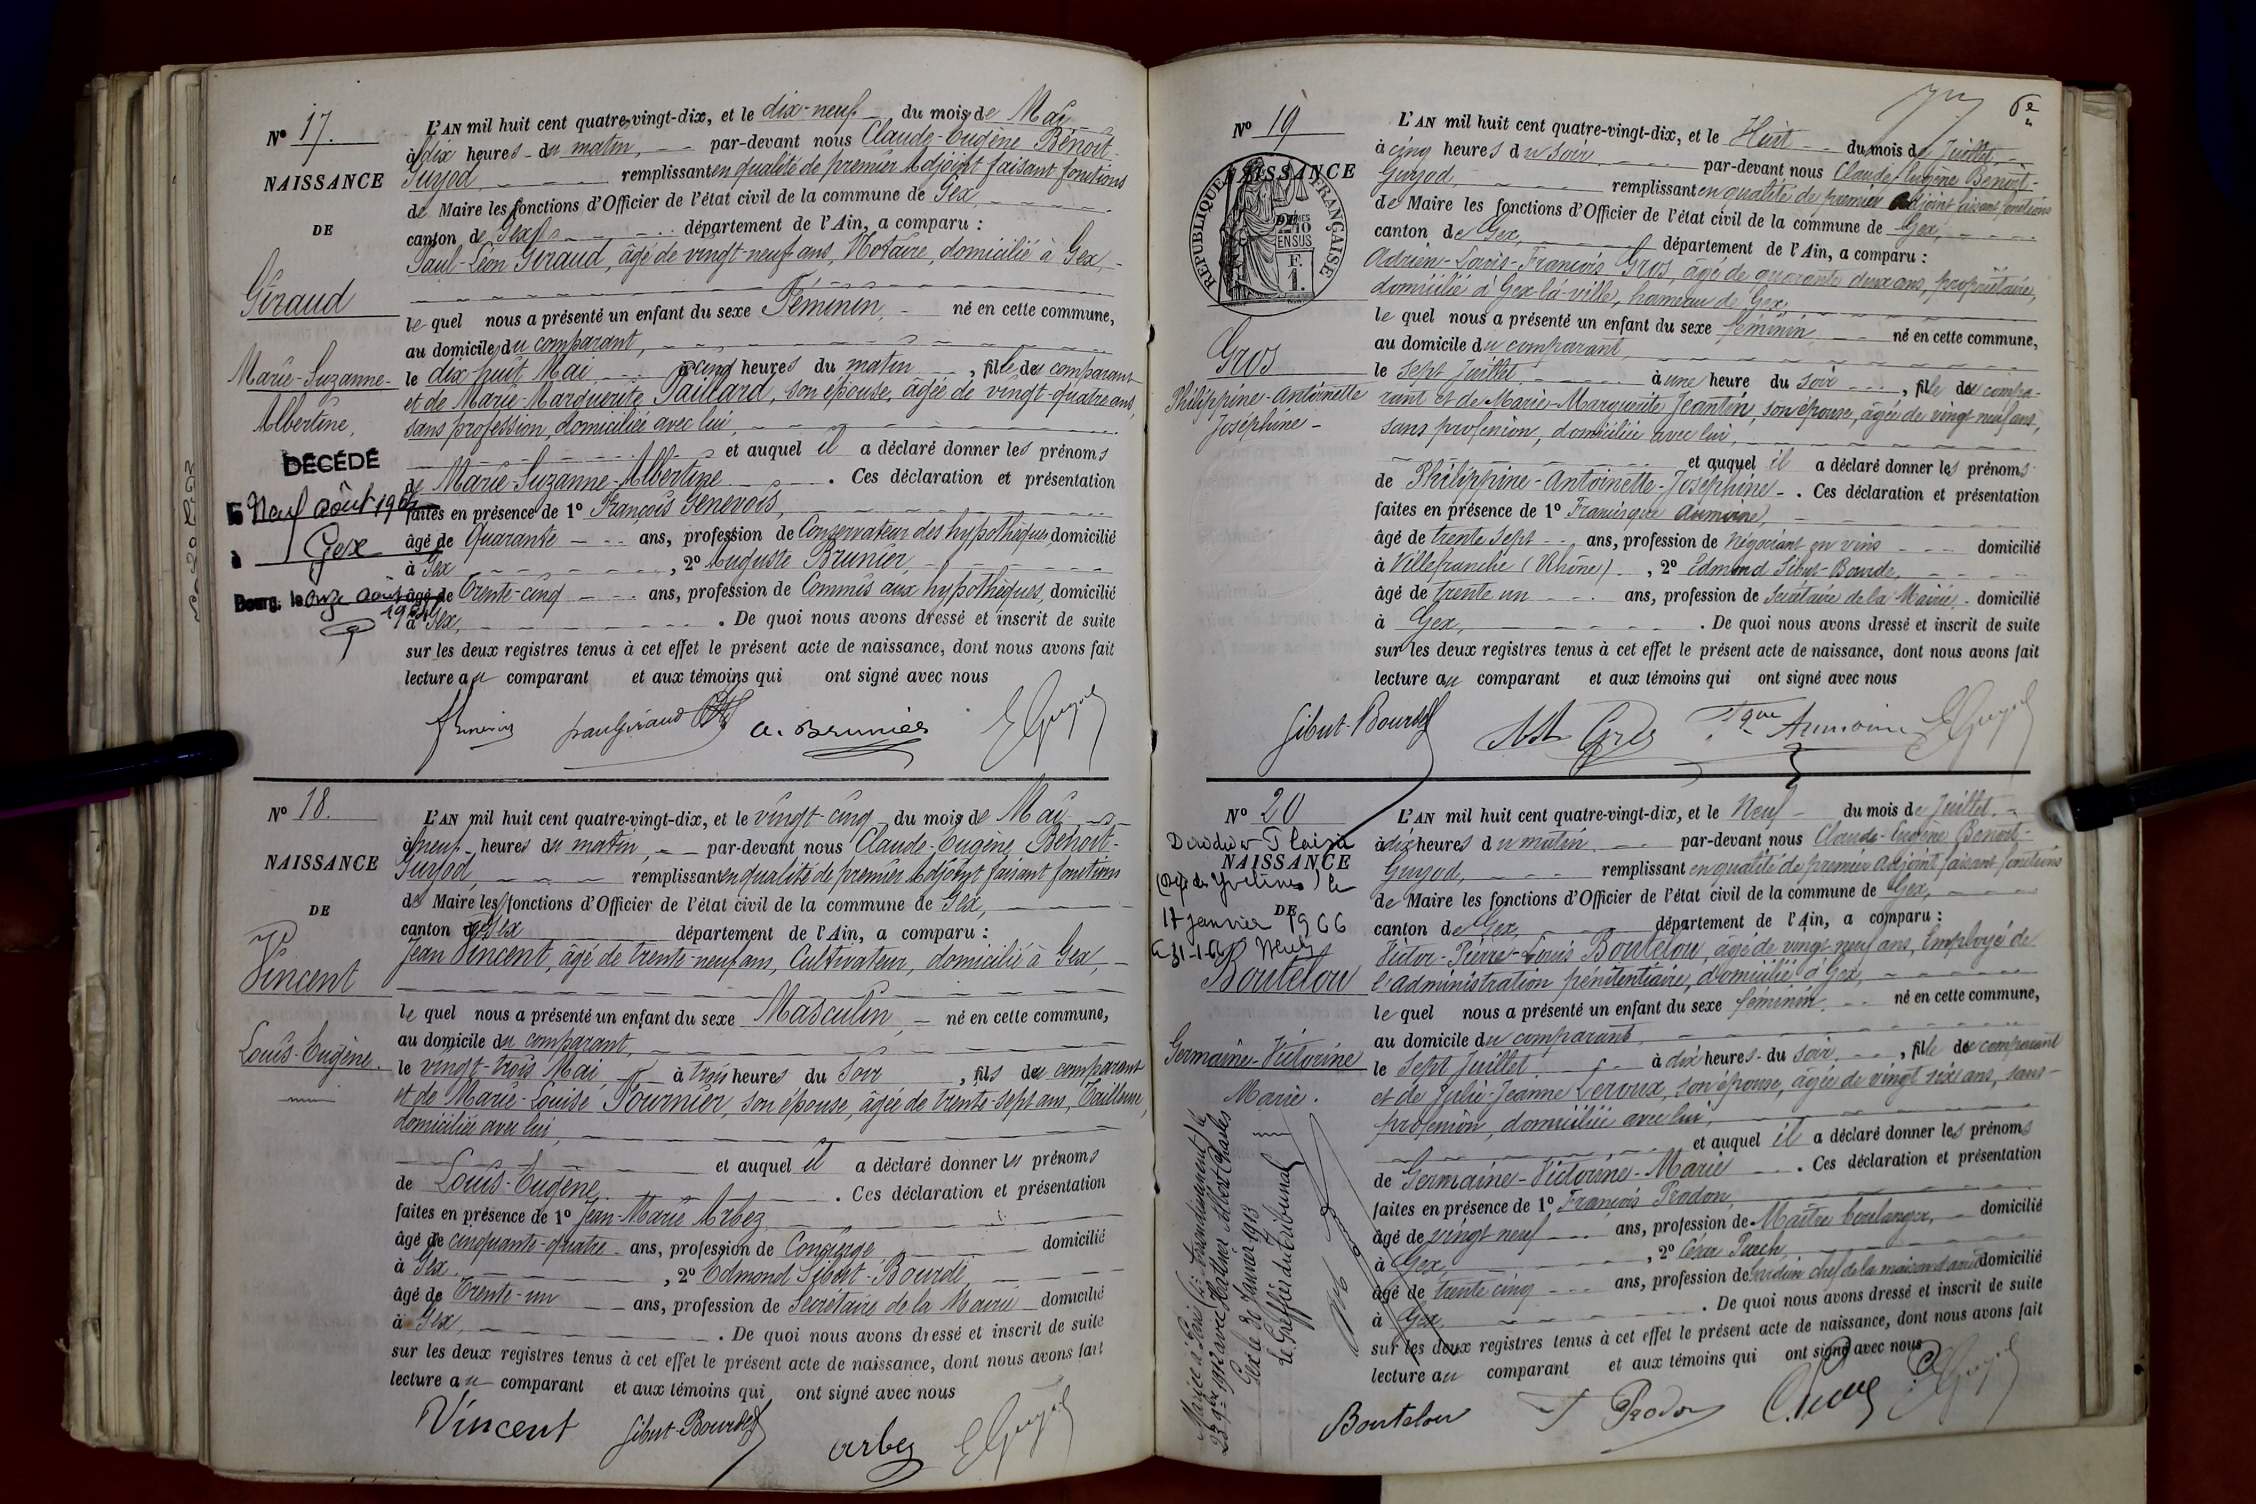 Nº 17.
NAISSANCE
DE
Giraud
Marie-Suzanne-
Albertine.
DÉCÉDÉ
Neuf août
à Gex
Bourg, le onze août
L'AN mil huit cent quatre-vingt-dix, et le dix-neuf du mois de Mai
à dix heures du matin, par-devant nous Claude-Eugène Benoit-
Guyod, remplissant en qualité de premier Adjoint faisant fonctions
de Maire les fonctions d'Officier de l'état civil de la commune de Gex,
canton de Gex, département de l'Ain, a comparu :
Paul-Léon Giraud, âgé de vingt-neuf ans, Notaire, domicilié à Gex,
le quel nous a présenté un enfant du sexe Féminin, né en cette commune,
au domicile du comparant,
le dix huit Mai à cinq heures du matin, fille du comparant
et de Marie-Marguerite Paillard, son épouse, âgée de vingt-quatre ans,
sans profession, domiciliée avec lui,
et auquel il a déclaré donner les prénoms
de Marie-Suzanne-Albertine. Ces déclaration et présentation
faites en présence de 1º François Genevois,
âgé de Quarante ans, profession de Conservateur des hypothèques, domicilié
à Gex, 2º Auguste Brunier,
âgé de Trente-cinq ans, profession de Commis aux hypothèques, domicilié
à Gex, . De quoi nous avons dressé et inscrit de suite
sur les deux registres tenus à cet effet le présent acte de naissance, dont nous avons fait
lecture au comparant et aux témoins qui ont signé avec nous
paul giraud a. Brunier E Guyod
Nº 18.
NAISSANCE
DE
Vincent
Louis-Eugène.
L'AN mil huit cent quatre-vingt-dix, et le vingt-cinq du mois de Mai
à neuf heures du matin, par-devant nous Claude-Eugène Benoit-
Guyod, remplissant en qualité de premier Adjoint faisant fonctions
de Maire les fonctions d'Officier de l'état civil de la commune de Gex,
canton de Gex département de l'Ain, a comparu :
Jean Vincent, âgé de trente-neuf ans, Cultivateur, domicilié à Gex,
le quel nous a présenté un enfant du sexe Masculin, né en cette commune,
au domicile du comparant,
le vingt-trois Mai à trois heures du soir, fils du comparant
et de Marie-Louise Fournier, son épouse, âgée de trente-sept ans, Tailleuse,
domiciliée avec lui,
et auquel il a déclaré donner les prénoms
de Louis-Eugène. Ces déclaration et présentation
faites en présence de 1º Jean-Marie Arbez
âgé de cinquante-quatre ans, profession de Concierge domicilié
à Gex, 2º Edmond Sibut-Bourde,
âgé de Trente-un ans, profession de Secrétaire de la Mairie domicilié
à Gex, . De quoi nous avons dressé et inscrit de suite
sur les deux registres tenus à cet effet le présent acte de naissance, dont nous avons fait
lecture au comparant et aux témoins qui ont signé avec nous
Vincent Sibut-Bourde arbez E Guyod
6e
Nº 19
NAISSANCE
RÉPUBLIQUE FRANÇAISE
2/10 EN SUS
F. 1.
Gros
Philippine-Antoinette
Joséphine-
L'AN mil huit cent quatre-vingt-dix, et le Huit du mois de Juillet,
à cinq heures du soir, par-devant nous Claude-Eugène Benoit-
Guyod, remplissant en qualité de premier adjoint faisant fonctions
de Maire les fonctions d'Officier de l'état civil de la commune de Gex,
canton de Gex, département de l'Ain, a comparu :
Adrien-Louis-François Gros, âgé de quarante deux ans, propriétaire,
domicilié à Gex-la-ville, hameau de Gex,
le quel nous a présenté un enfant du sexe féminin, né en cette commune,
au domicile du comparant
le sept Juillet à une heure du soir, fille du compa-
rant et de Marie-Marguerite Jeantin, son épouse, âgée de vingt neuf ans,
sans profession, domiciliée avec lui,
et auquel il a déclaré donner les prénoms
de Philippine-Antoinette-Joséphine-. Ces déclaration et présentation
faites en présence de 1º Francisque Aumoine,
âgé de trente sept ans, profession de Négociant en vins domicilié
à Villefranche (Rhône), 2º Edmond Sibut-Bourde,
âgé de trente un ans, profession de Secrétaire de la Mairie, domicilié
à Gex, . De quoi nous avons dressé et inscrit de suite
sur les deux registres tenus à cet effet le présent acte de naissance, dont nous avons fait
lecture au comparant et aux témoins qui ont signé avec nous
Sibut-Bourde Gros Fque Aumoine E Guyod
Nº 20
NAISSANCE
DE
17 janvier 1966
Boutelou
Germaine-Victorine
Marie.
Mariée à Paris
avec Mathieu Albert Charles
Gex le 2 Janvier 1913
Le Greffier du Tribunal
L'AN mil huit cent quatre-vingt-dix, et le Neuf du mois de Juillet,
à dix heures du matin par-devant nous Claude-Eugène Benoit-
Guyod, remplissant en qualité de premier adjoint faisant fonctions
de Maire les fonctions d'Officier de l'état civil de la commune de Gex,
canton de Gex, département de l'Ain, a comparu :
Victor-Pierre-Louis Boutelou, âgé de vingt neuf ans, Employé de
l'administration pénitentiaire, domicilié à Gex,
le quel nous a présenté un enfant du sexe féminin, né en cette commune,
au domicile du comparant
le Sept Juillet à dix heures du soir, fille du comparant
et de Julie-Jeanne Leroux, son épouse, âgée de vingt six ans, sans-
profession, domiciliée avec lui,
et auquel il a déclaré donner les prénoms
de Germaine-Victorine-Marie. Ces déclaration et présentation
faites en présence de 1º François Prodon,
âgé de vingt neuf ans, profession de Maître boulanger, domicilié
à Gex, 2º César Puech,
âgé de trente cinq ans, profession de gardien chef de la maison d'arrêt domicilié
à Gex, . De quoi nous avons dressé et inscrit de suite
sur les deux registres tenus à cet effet le présent acte de naissance, dont nous avons fait
lecture au comparant et aux témoins qui ont signé avec nous
Boutelou F Prodon E Guyod